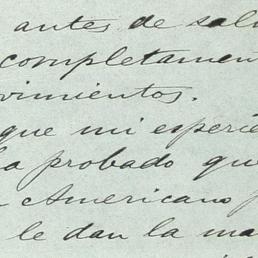 antes de salu
completament
vimientos.
que mi esperie
a probado que
Americano
le dan la ma